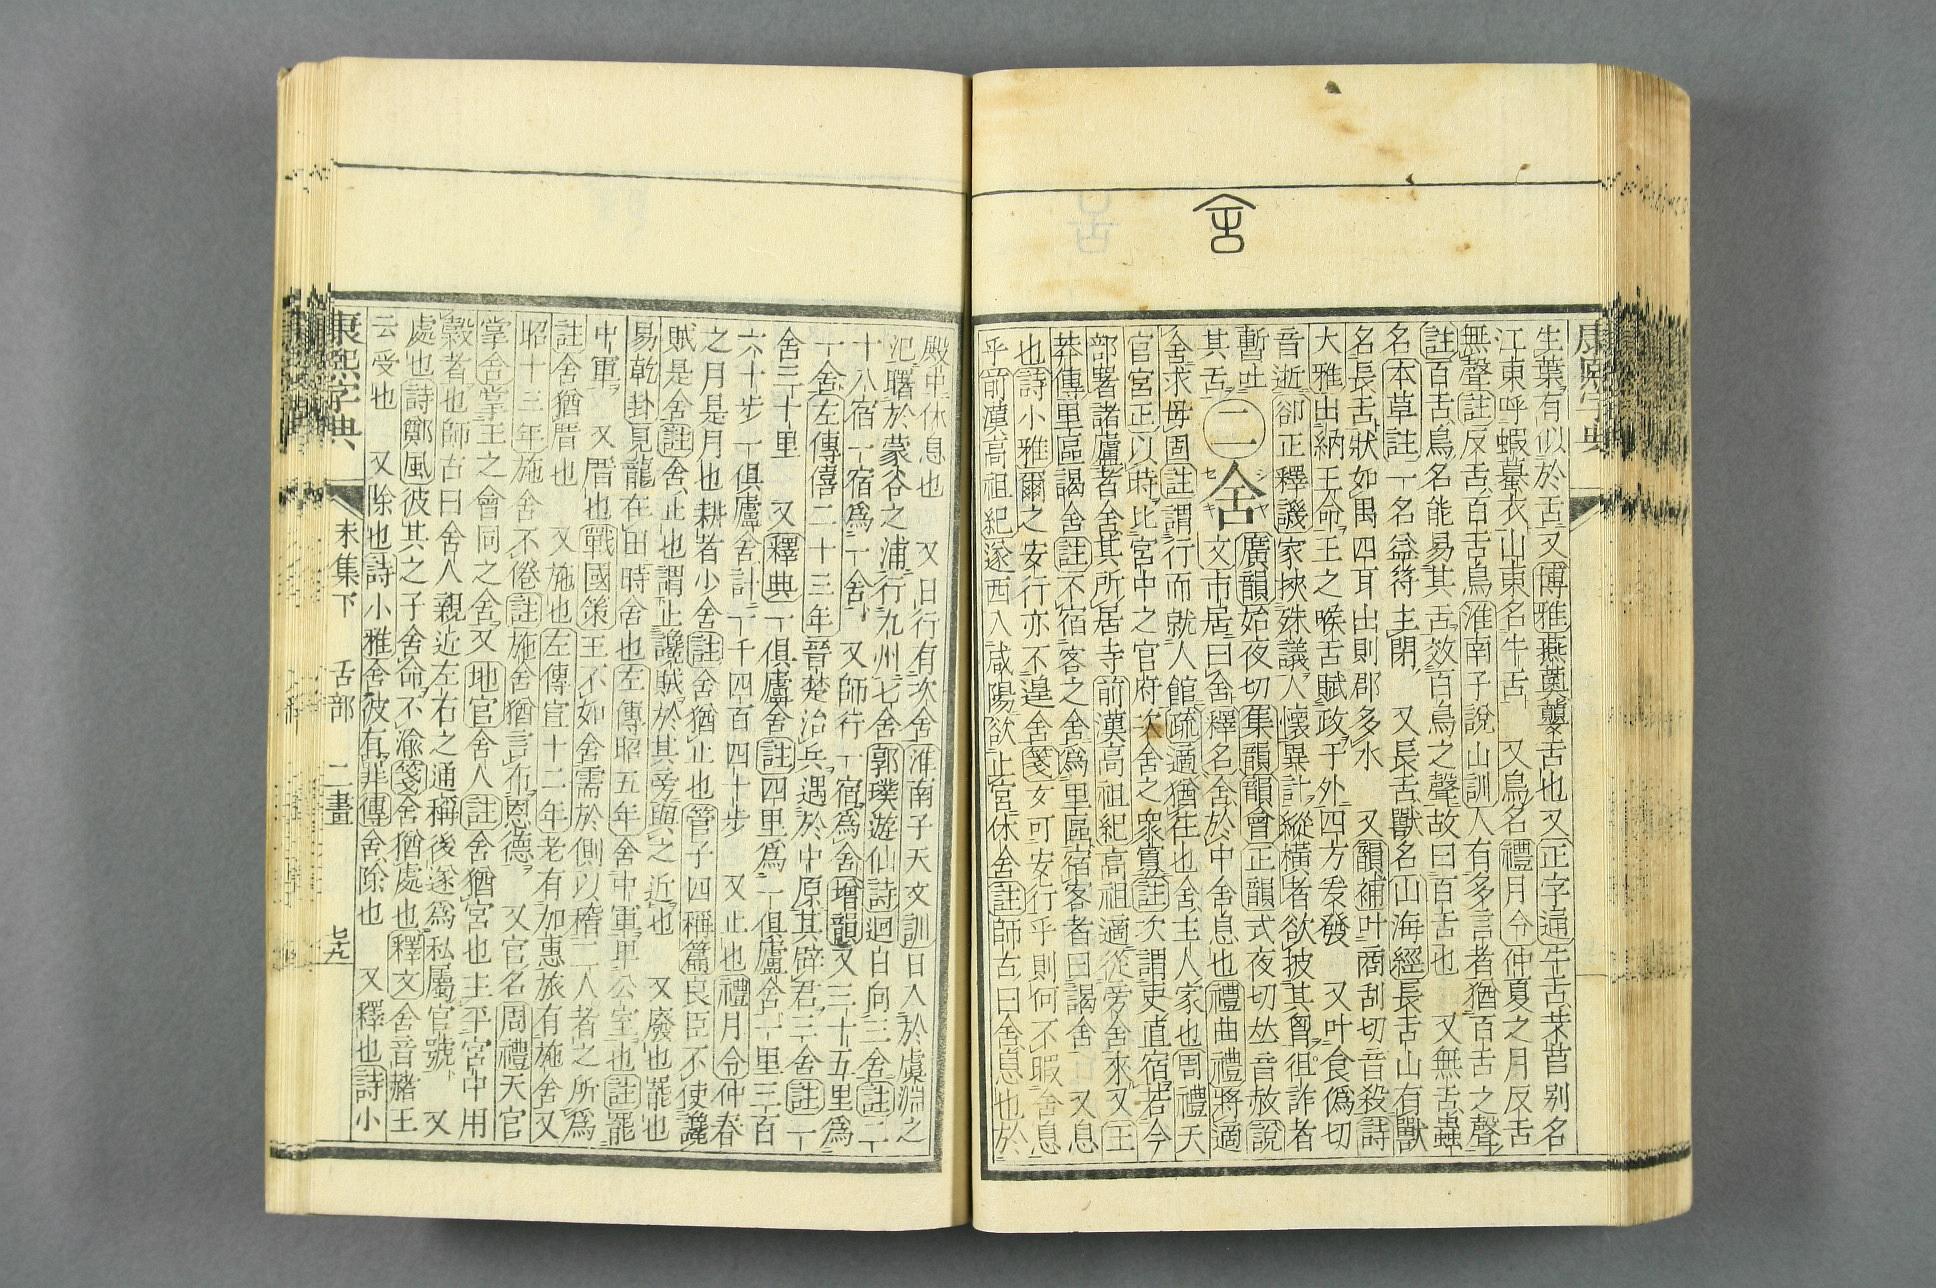 舍
康熙字典
生葉有似於舌又博雅燕薁蘡舌也又正字通牛舌芣苢別名
江東呼蝦蟇衣山東名牛舌　又鳥名禮月令仲夏之月反舌
無聲註反舌百舌鳥淮南子說山訓人有多言者猶百舌之聲
註百舌鳥名能易其舌效百鳥之聲故曰百舌也　又無舌蟲
名本草註一名益符主閉　又長舌獸名山海經長舌山有獸
名長舌狀如禺四耳出則郡多水　又韻補叶商刮切音殺詩
大雅出納王命王之喉舌賦政于外四方爰發　又叶食僞切
音逝郤正釋譏家挾殊議人懷異計縱橫者欲披其胷狙詐者
暫吐其舌
二
舍
シヤ
セキ
廣韻始夜切集韻韻會正韻式夜切𠀤音赦說
文市居曰舍釋名舍於中舍息也禮曲禮將適
舍求毋固註謂行而就人館疏適猶往也舍主人家也周禮天
官宮正以時比宮中之官府次舍之衆寡註次謂吏直宿若今
部署諸廬者舍其所居寺前漢高祖紀高祖適從旁舍來又王
莽傳里區謁舍註不宿客之舍爲里區宿客者曰謁舍　又息
也詩小雅爾之安行亦不遑舍箋女可安行乎則何不暇舍息
乎前漢高祖紀遂西入咸陽欲止宮休舍註師古曰舍息也於
殿中休息也　又日行有次舍淮南子天文訓日入於虞淵之
汜曙於蒙谷之浦行九州七舍郭璞遊仙詩迴日向三舍註二
十八宿一宿爲一舍　又師行一宿爲舍增韻又三十五里爲
一舍左傳僖二十三年晉楚治兵遇於中原其辟君三舍註一
舍三十里　又釋典一俱廬舍註四里爲一俱廬舍一里三百
六十步一俱廬舍計一千四百四十步　又止也禮月令仲春
之月是月也耕者少舍註舍猶止也管子四稱篇良臣不使讒
賊是舍註舍止也謂止讒賊於其旁與之近也　又廢也罷也
易乾卦見龍在田時舍也左傳昭五年舍中軍卑公室也註罷
中軍　又厝也戰國策王不如舍需於側以稽二人者之所爲
註舍猶厝也　又施也左傳宣十二年老有加惠旅有施舍又
昭十三年施舍不倦註施舍猶言布恩德　又官名周禮天官
掌舍掌王之會同之舍又地官舍人註舍猶宮也主平宮中用
穀者也師古曰舍人親近左右之通稱後遂爲私屬官號　又
處也詩鄭風彼其之子舍命不渝箋舍猶處也釋文舍音赦王
云受也　又除也詩小雅舍彼有罪傳舍除也　又釋也詩小
康熙字典
未集下　舌部　二畫
七九